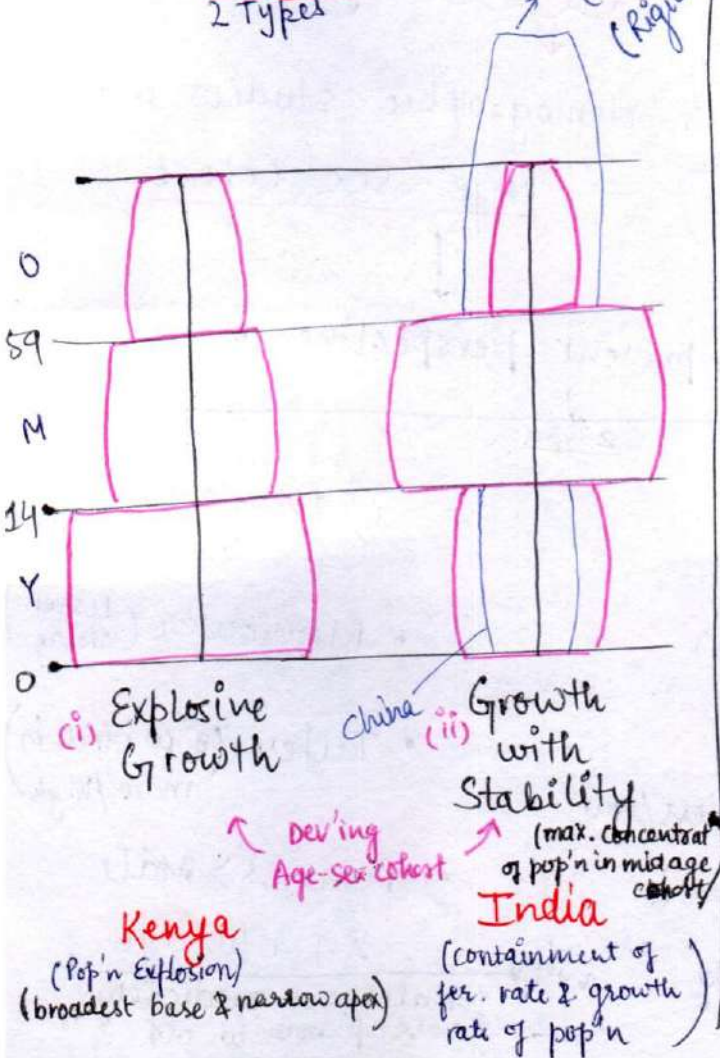 2 Types
O
59
M
14
Y
0
(i) Explosive
Growth
China
(ii) Growth
with
Stability
(max. concentrat
of pop'n in mid age
cohort)
Dev'ing
Age-sex cohort
Kenya
(Pop'n Explosion)
(broadest base & narrow apex)
India
(containment of
fer. rate & growth
rate of pop'n)